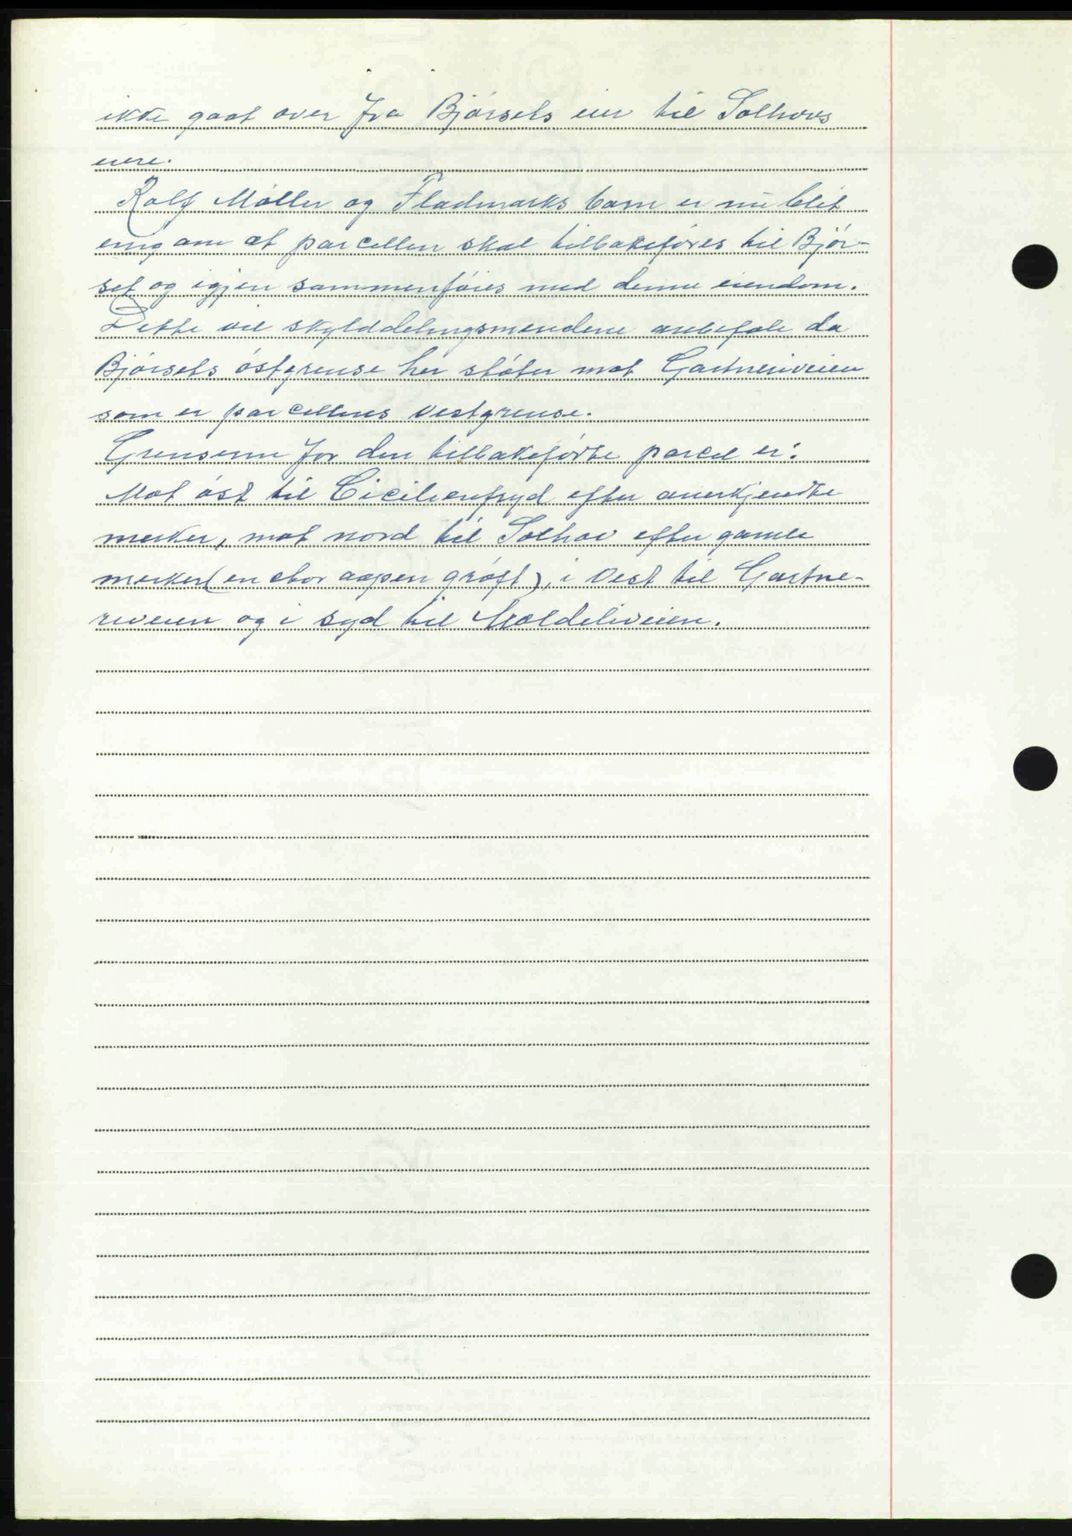 ikke gaat over fra Bjørsets eier til Solhovs
eiere.
Rolf Møller og Fladmarks barn er nu blit
enig om at parcellen skal tilbakeføres til Bjør-
set og igjen sammenføies med denne eiendom.
Dette vil skylddelingsmændene anbefale da
Bjørsets østgrense her støter mot Gartneriveien
som er parcellens vestgrense.
Grensene for den tilbakeførte parcel er:
Mot øst til Cicilienfryd efter anerkjendte
merker, mot nord til Solhov efter gamle
merker (en stor aapen grøft), i vest til Gartne-
riveien og i syd til Moldeliveien.